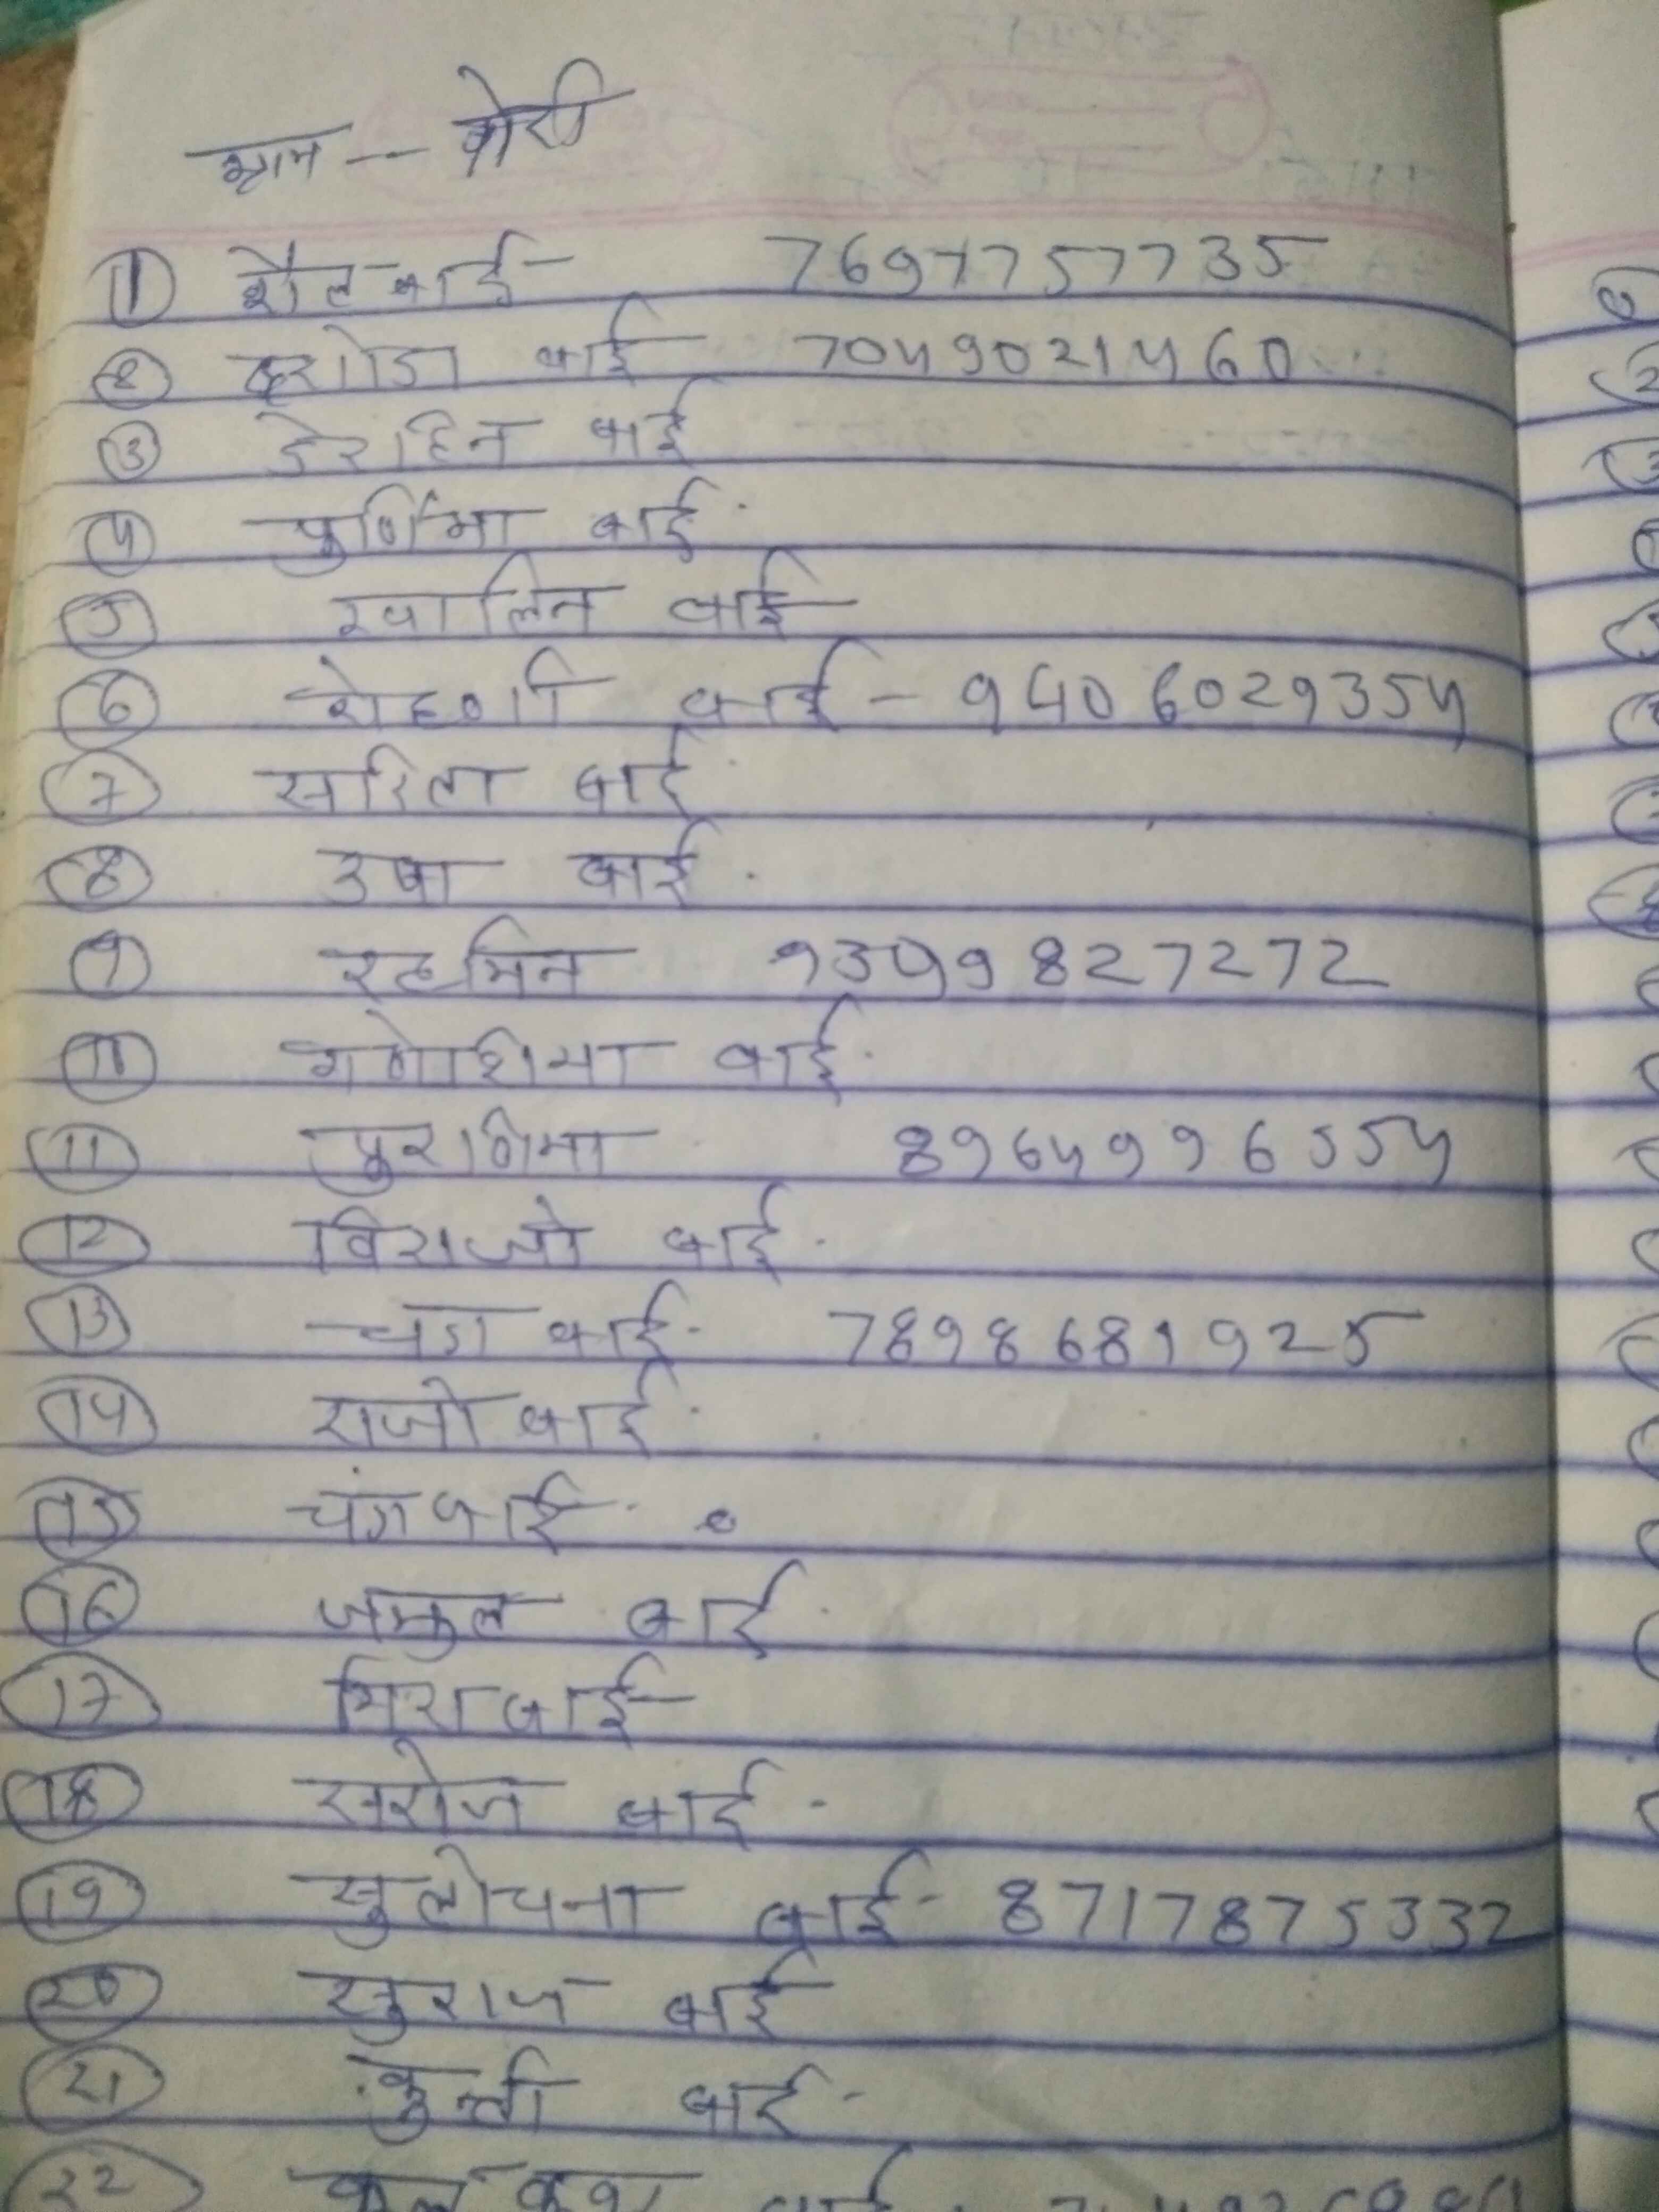 ग्राम -- बोरी
① शैल बाई - 7697757735
② दशोडा बाई 7049021460
③ डेरहिन बाई
④ पुर्णिमा बाई
⑤ ग्वालिन बाई -
⑥ रोहणी बाई - 9406029354
⑦ सरिता बाई
⑧ उषा बाई
⑨ रहमिन 9399827272
⑩ गणेशिया बाई
⑪ पुरणिमा 8964996554
⑫ बिराजो बाई
⑬ चंगा बाई 7898681925
⑭ राजो बाई
⑮ चंगा बाई
⑯ जमुल बाई
⑰ मिरा बाई -
⑱ सरोज बाई
⑲ सुलोचना बाई - 8717875332
⑳ सुराज बाई
㉑ कुन्ती बाई -
㉒ बाई